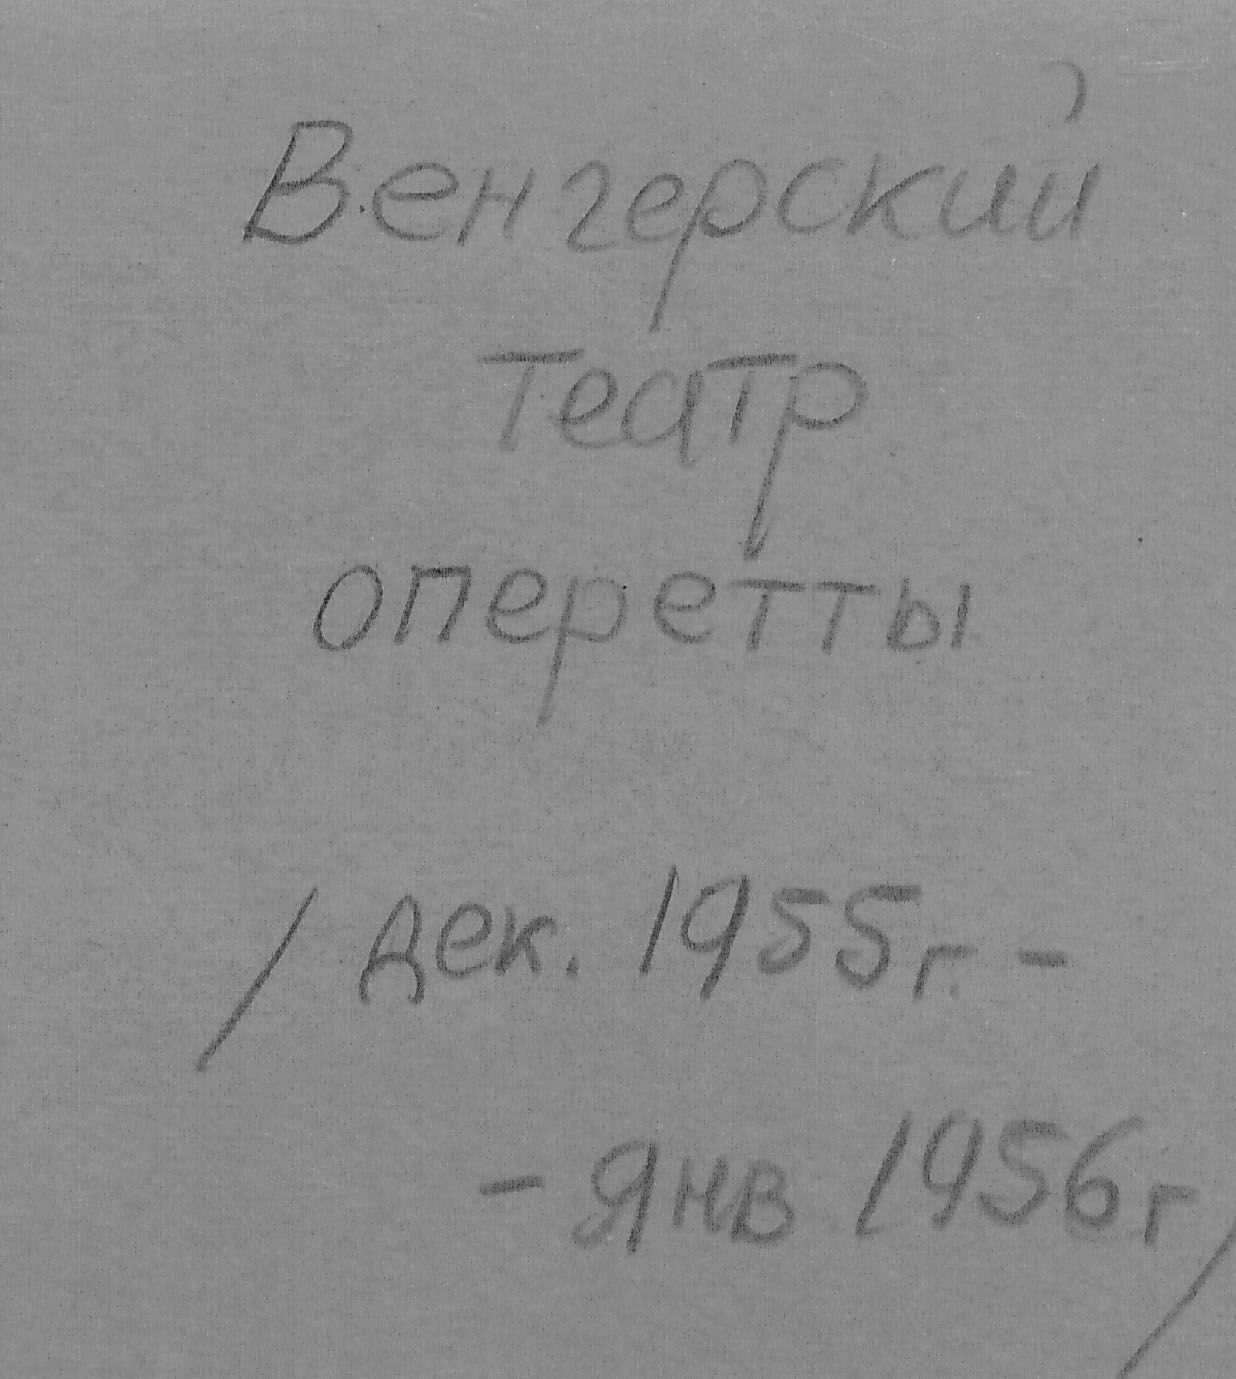 Венгерский
театр
оперетты
/ дек. 1955г. -
- янв 1956г /